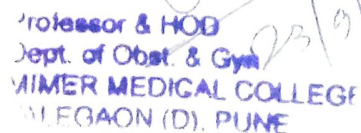 Professor & HOD
Dept. of Obst. & Gyn
MIMER MEDICAL COLLEGE
TALEGAON (D). PUNE